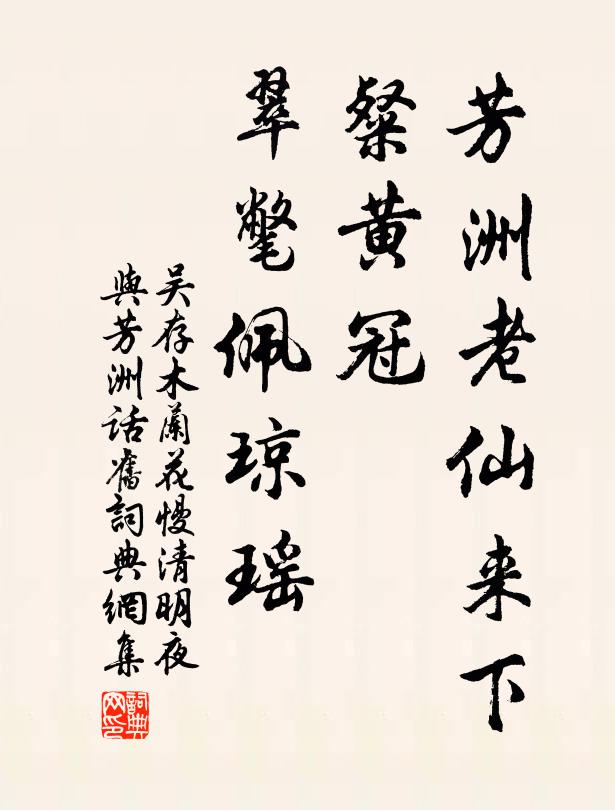 芳洲老仙来下
粲黄冠
翠氅佩琼瑶
吴存木蘭花慢清明夜
與芳洲话舊詞典網集
詞典網印